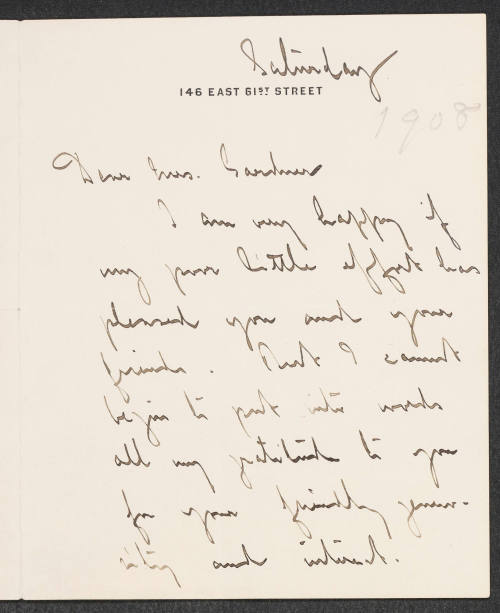 Saturday
146 EAST 61ST STREET
1908
Dear Mrs. Gardner
I am very happy if
my poor little effort has
pleased you and your
friends. But I cannot
begin to put into words
all my gratitude to you
for your friendly gener-
osity and interest.